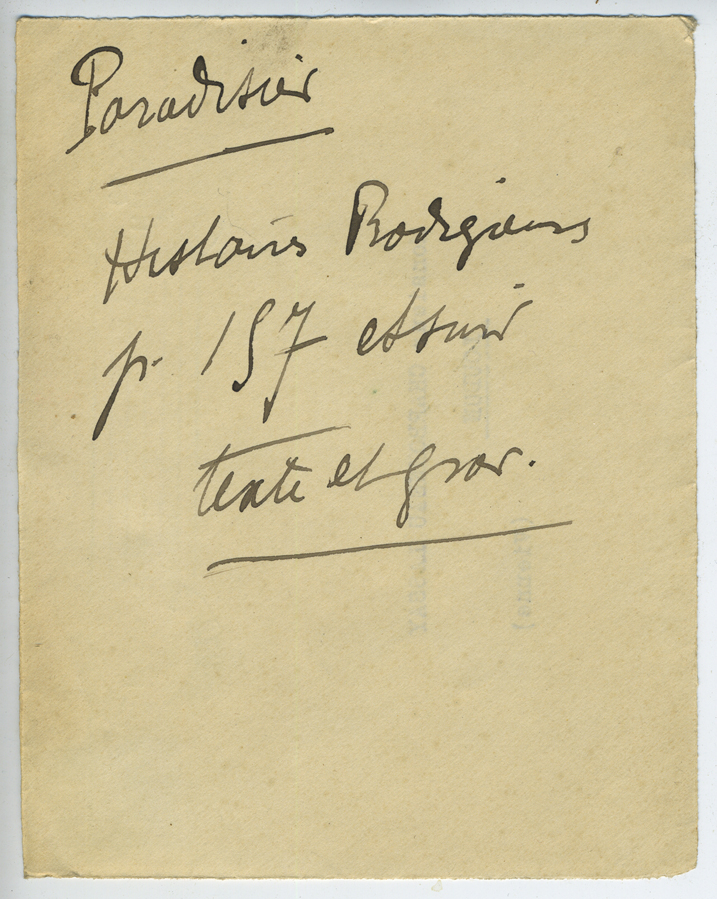 Paradisier
Histoires Prodigieuses
p. 157 et suiv
texte et grav.